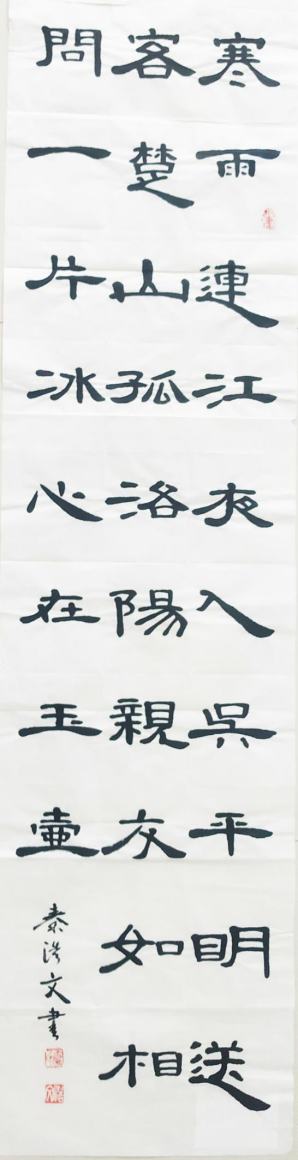 寒雨連江夜入吳平明送
客楚山孤洛陽親友如相
問一片冰心在玉壺
秦浩文書